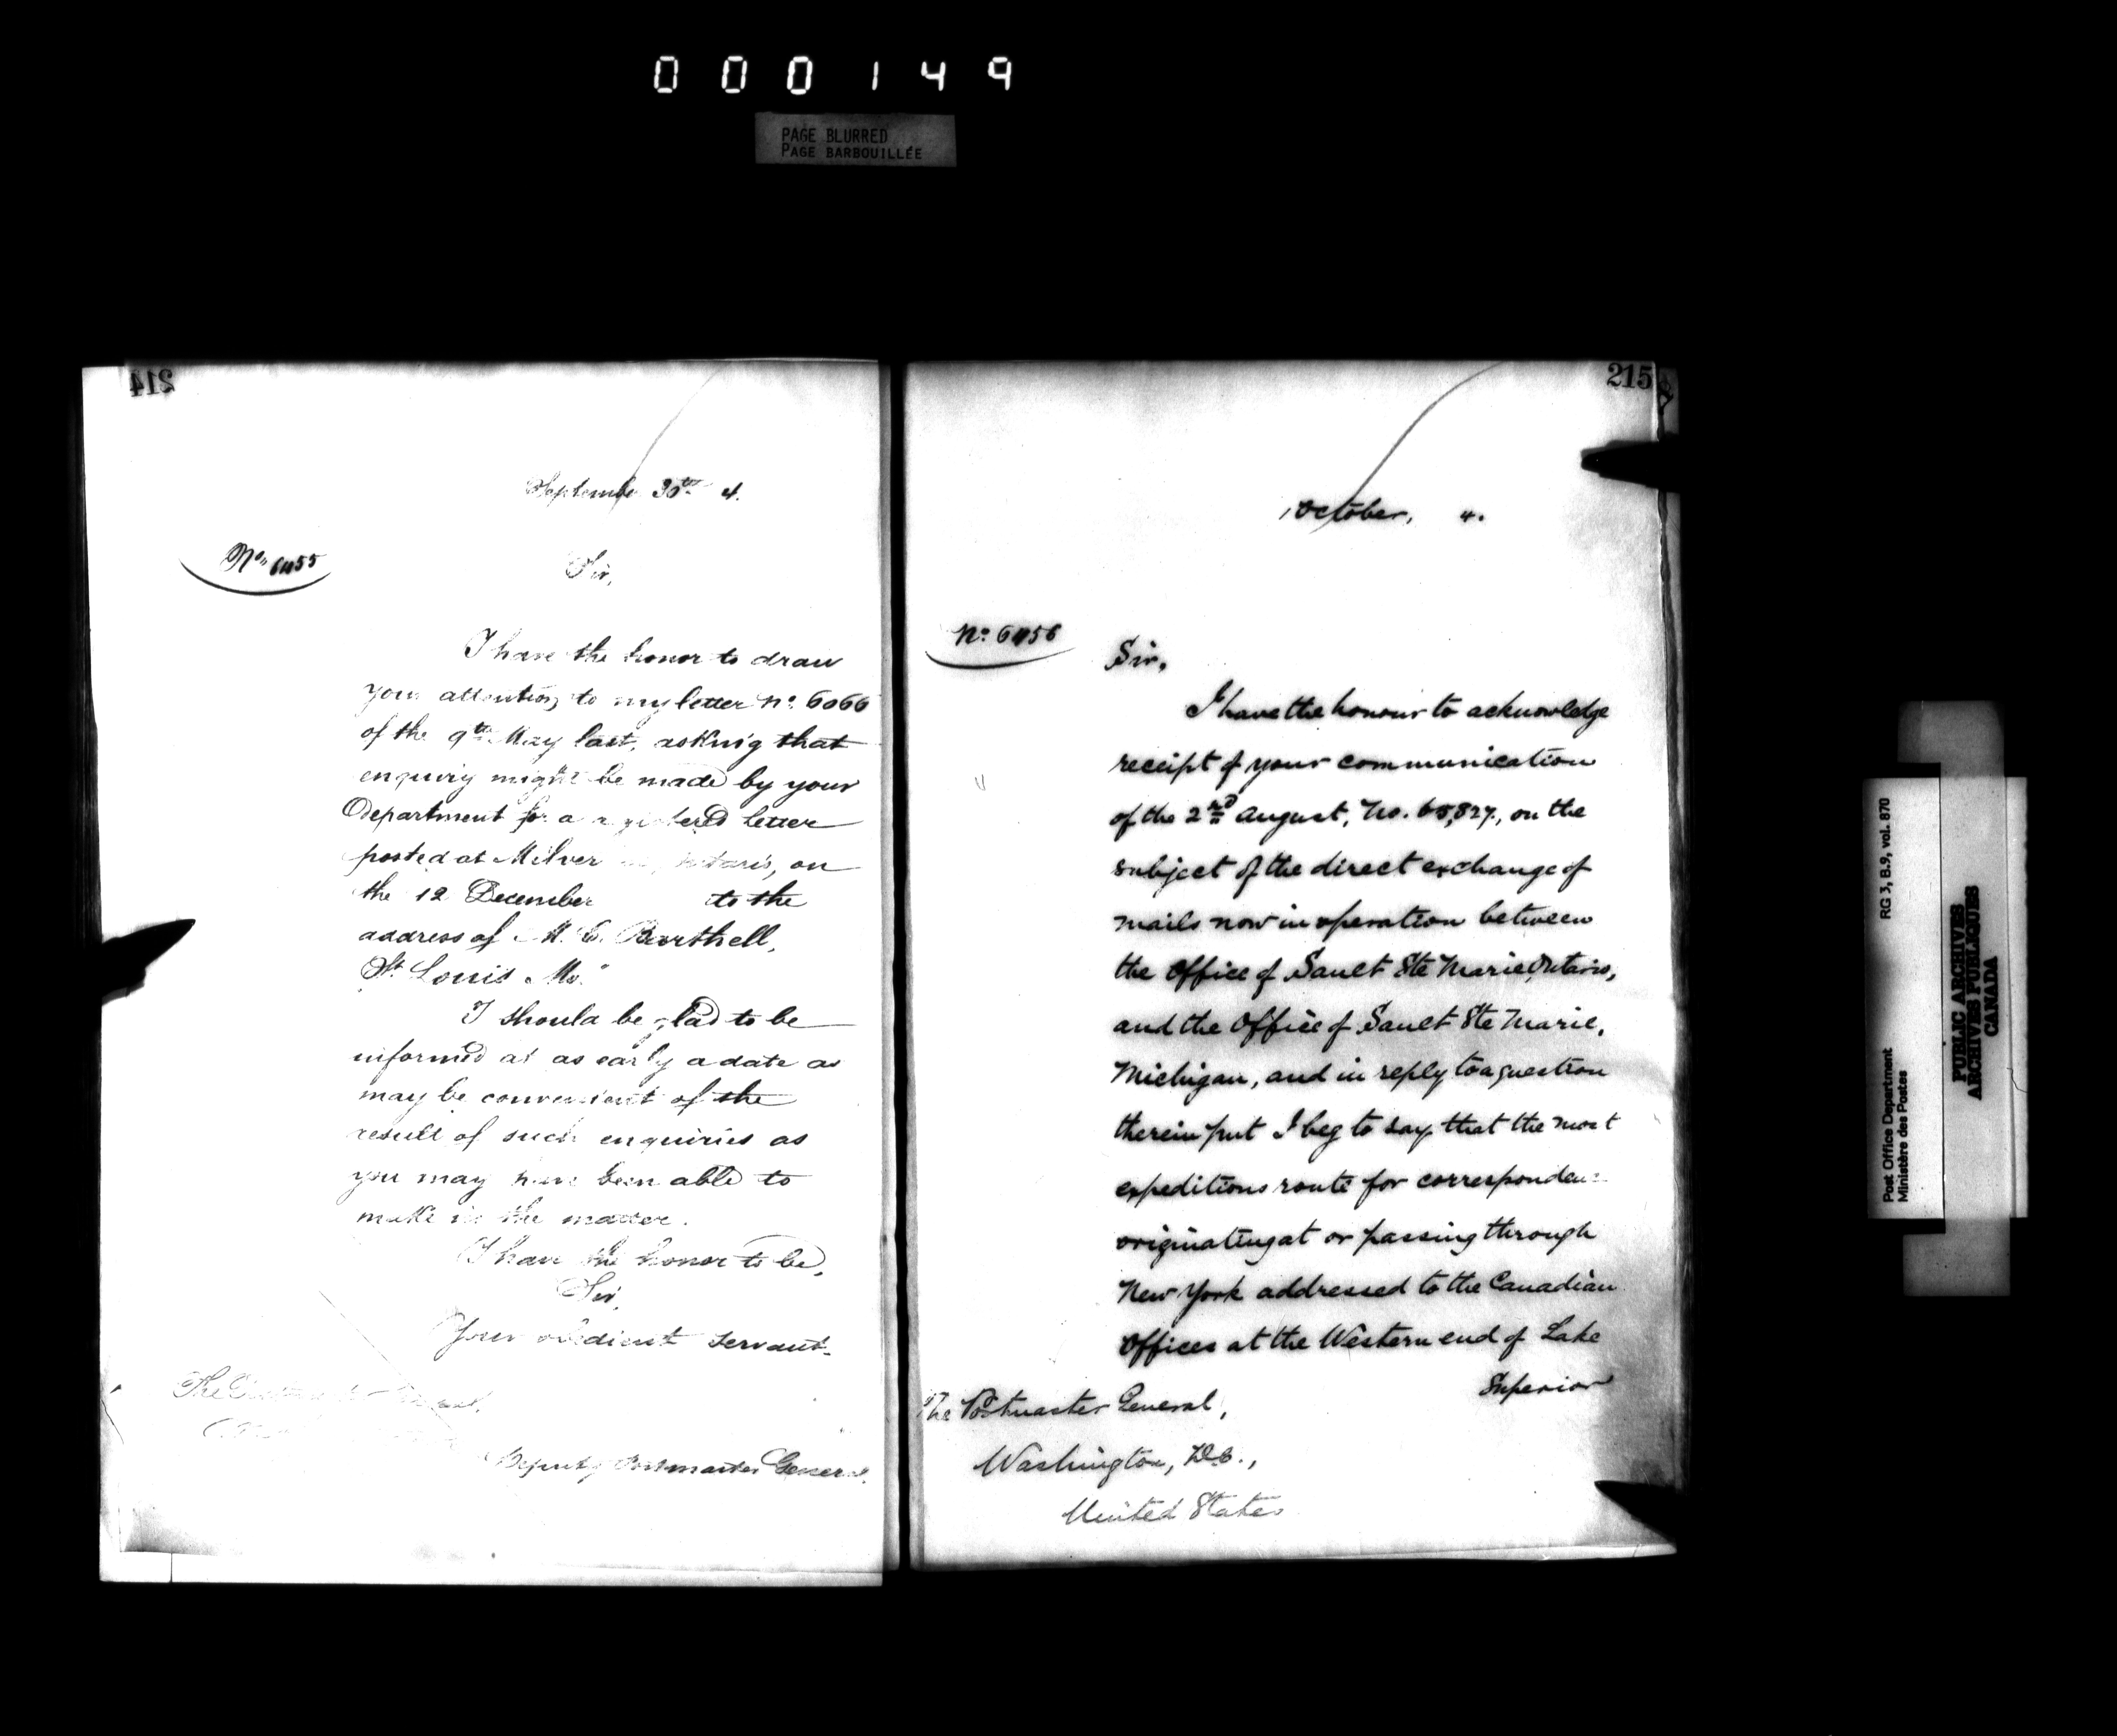 000149
PAGE BLURRED
PAGE BARBOUILLÉE
214
September 30th 4.
No. 6455
Sir,
I have the honor to draw
your attention to my letter No. 6066
of the 9th May last, asking that
enquiry might be made by your
Department for a registered letter
posted at Milver on
the 12 December to the
address of M. C. Barthell,
St. Louis Mo."
I should be glad to be
informed at as early a date as
may be convenient of the
result of such enquiries as
you may have been able to
make in the matter.
I have the honor to be,
Sir,
Your obedient servant.
The
Deputy Postmaster General.
215
1 October, 4.
No. 6456
Sir,
I have the honour to acknowledge
receipt of your communication
of the 2nd August, No. 65,827, on the
subject of the direct exchange of
mails now in operation between
the Office of Sault Ste Marie Ontario,
and the Office of Sault Ste Marie,
Michigan, and in reply to a question
therein put I beg to say that the most
expeditious route for corresponden
originating at or passing through
New York addressed to the Canadian
Offices at the Western end of Lake
Superior
The Postmaster General,
Washington, D.C.,
United States
Post Office Department
Ministère des Postes
RG 3, B.9, vol. 870
PUBLIC ARCHIVES
ARCHIVES PUBLIQUES
CANADA